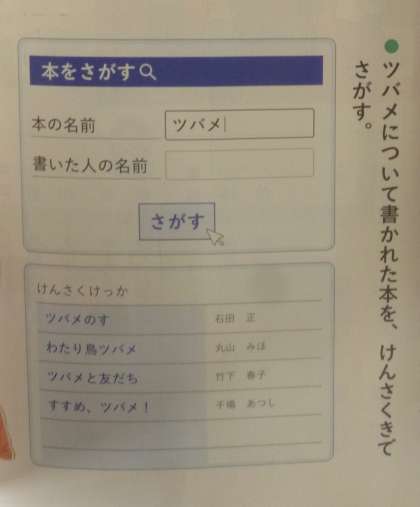 ●ツバメについて書かれた本を、けんさくきで
さがす。
本をさがす
本の名前 ツバメ
書いた人の名前
さがす
けんさくけっか
ツバメのす 石田 正
わたり鳥ツバメ 丸山 みほ
ツバメと友だち 竹下 春子
すすめ、ツバメ! 千場 あつし